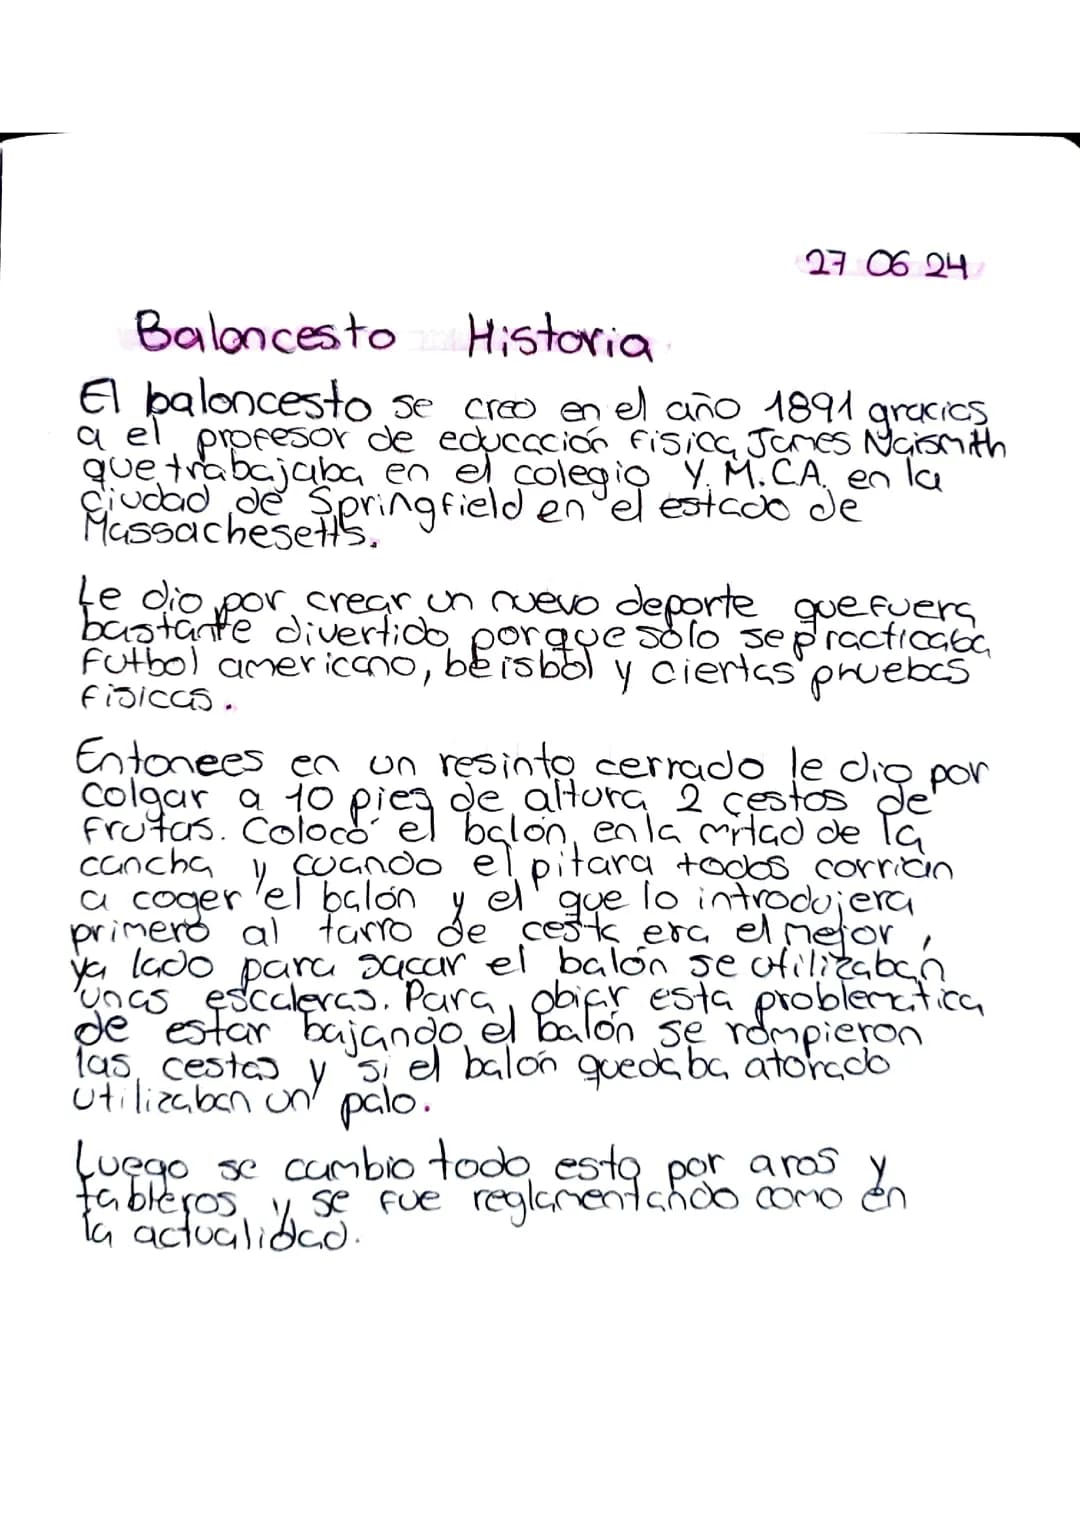 27 06 24
Baloncesto Historia
El baloncesto se creo en el año 1891 gracias
a el profesor de educación fisica James Naismith
que trabajaba en el colegio Y.M.C.A. en la
ciudad de Springfield en el estado de
Massachesetts.
Le dio por crear un nuevo deporte que fuera
bastante divertido porque sólo se practicaba
futbol americano, béisbol y ciertas pruebas
fisicas.
Entonces en un resinto cerrado le dio por
colgar a 10 pies de altura 2 cestos de
frutas. Colocó el balón en la mitad de la
cancha y cuando el pitara todos corrian
a coger el balón y el que lo introdujera
primero al tarro de cesta era el mejor,
ya lado para sacar el balón se utilizaban
unas escaleras. Para obiar esta problematica
de estar bajando el balón se rompieron
las cestas y si el balón quedaba atorado
utilizaban un palo.
Luego se cambio todo esto por aros y
tableros y se fue reglamentando como en
la actualidad.